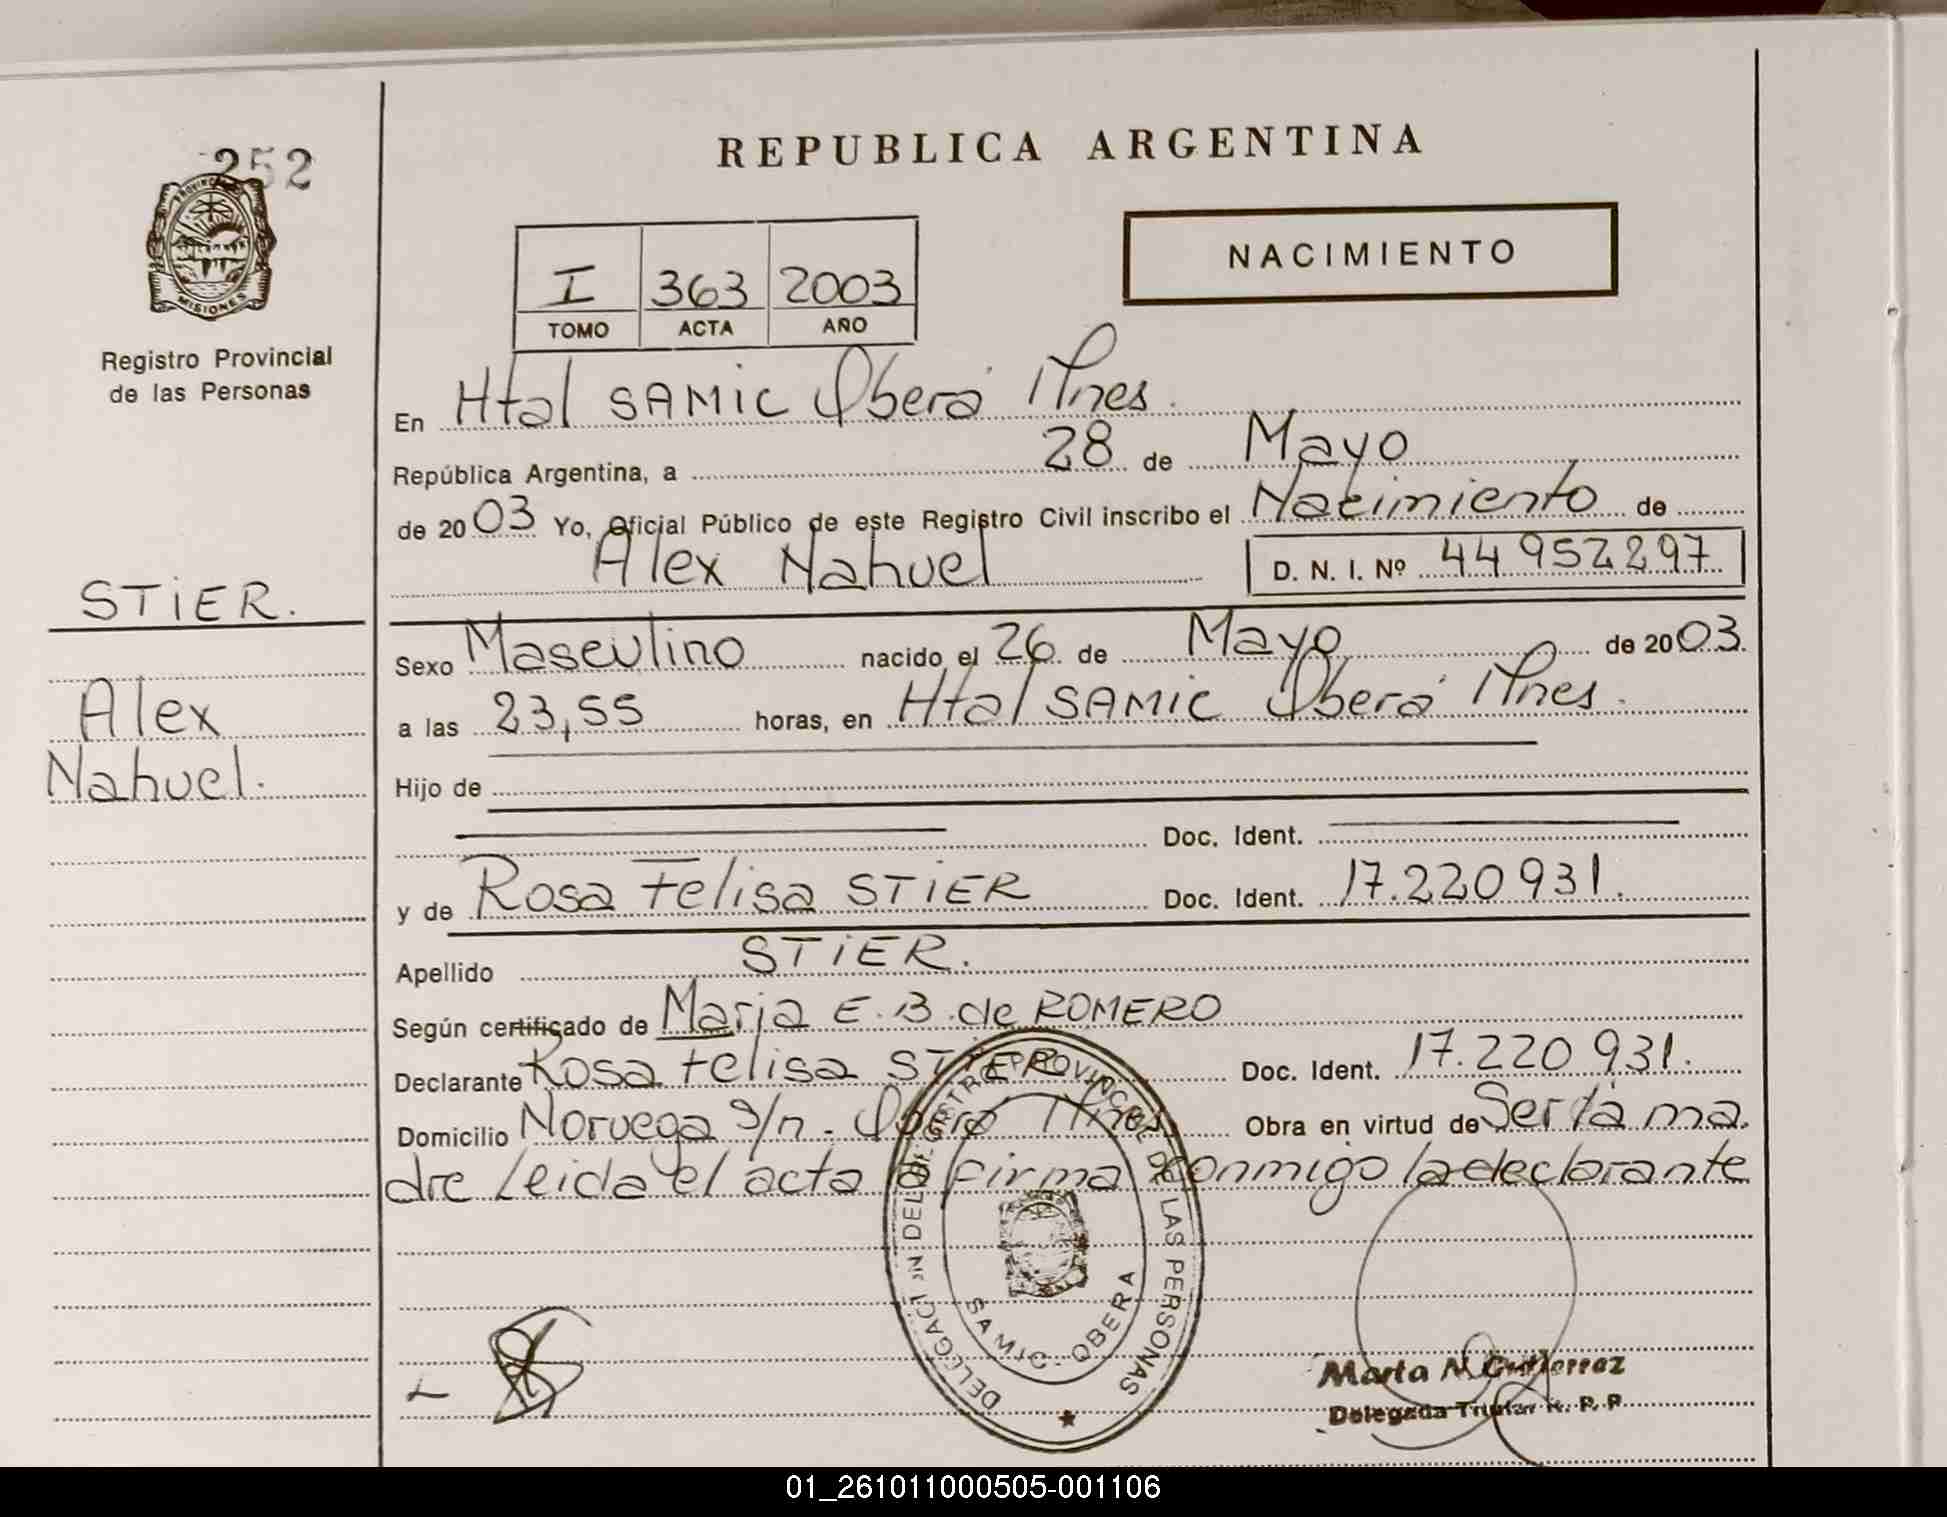 252
PROVINCIA
MISIONES
Registro Provincial
de las Personas
STiER.
Alex
Nahuel.
REPUBLICA ARGENTINA
I 363 2003
TOMO ACTA AÑO
NACIMIENTO
En Htal SAMIC Oberá Mnes.
República Argentina, a 28 de Mayo
de 2003 Yo, Oficial Público de este Registro Civil inscribo el Nacimiento de
Alex Nahuel D. N. I. Nº 44 952 297
Sexo Masculino nacido el 26 de Mayo de 2003.
a las 23,55 horas, en Htal SAMIC Oberá Mnes.
Hijo de
Doc. Ident.
y de Rosa Felisa STiER Doc. Ident. 17.220 931.
Apellido STiER.
Según certificado de Maria E. B. de ROMERO
Declarante Rosa Felisa STiER Doc. Ident. 17.220 931.
Domicilio Noruega s/n. Oberá Mnes. Obra en virtud de Ser la ma
dre Leida el acta la firma conmigo la declarante
DELEGACION DEL REGISTRO PROVINCIAL DE LAS PERSONAS
SAMIC. OBERA
Marta N. Gutierrez
Delegada Titular R. P. P
01_261011000505-001106